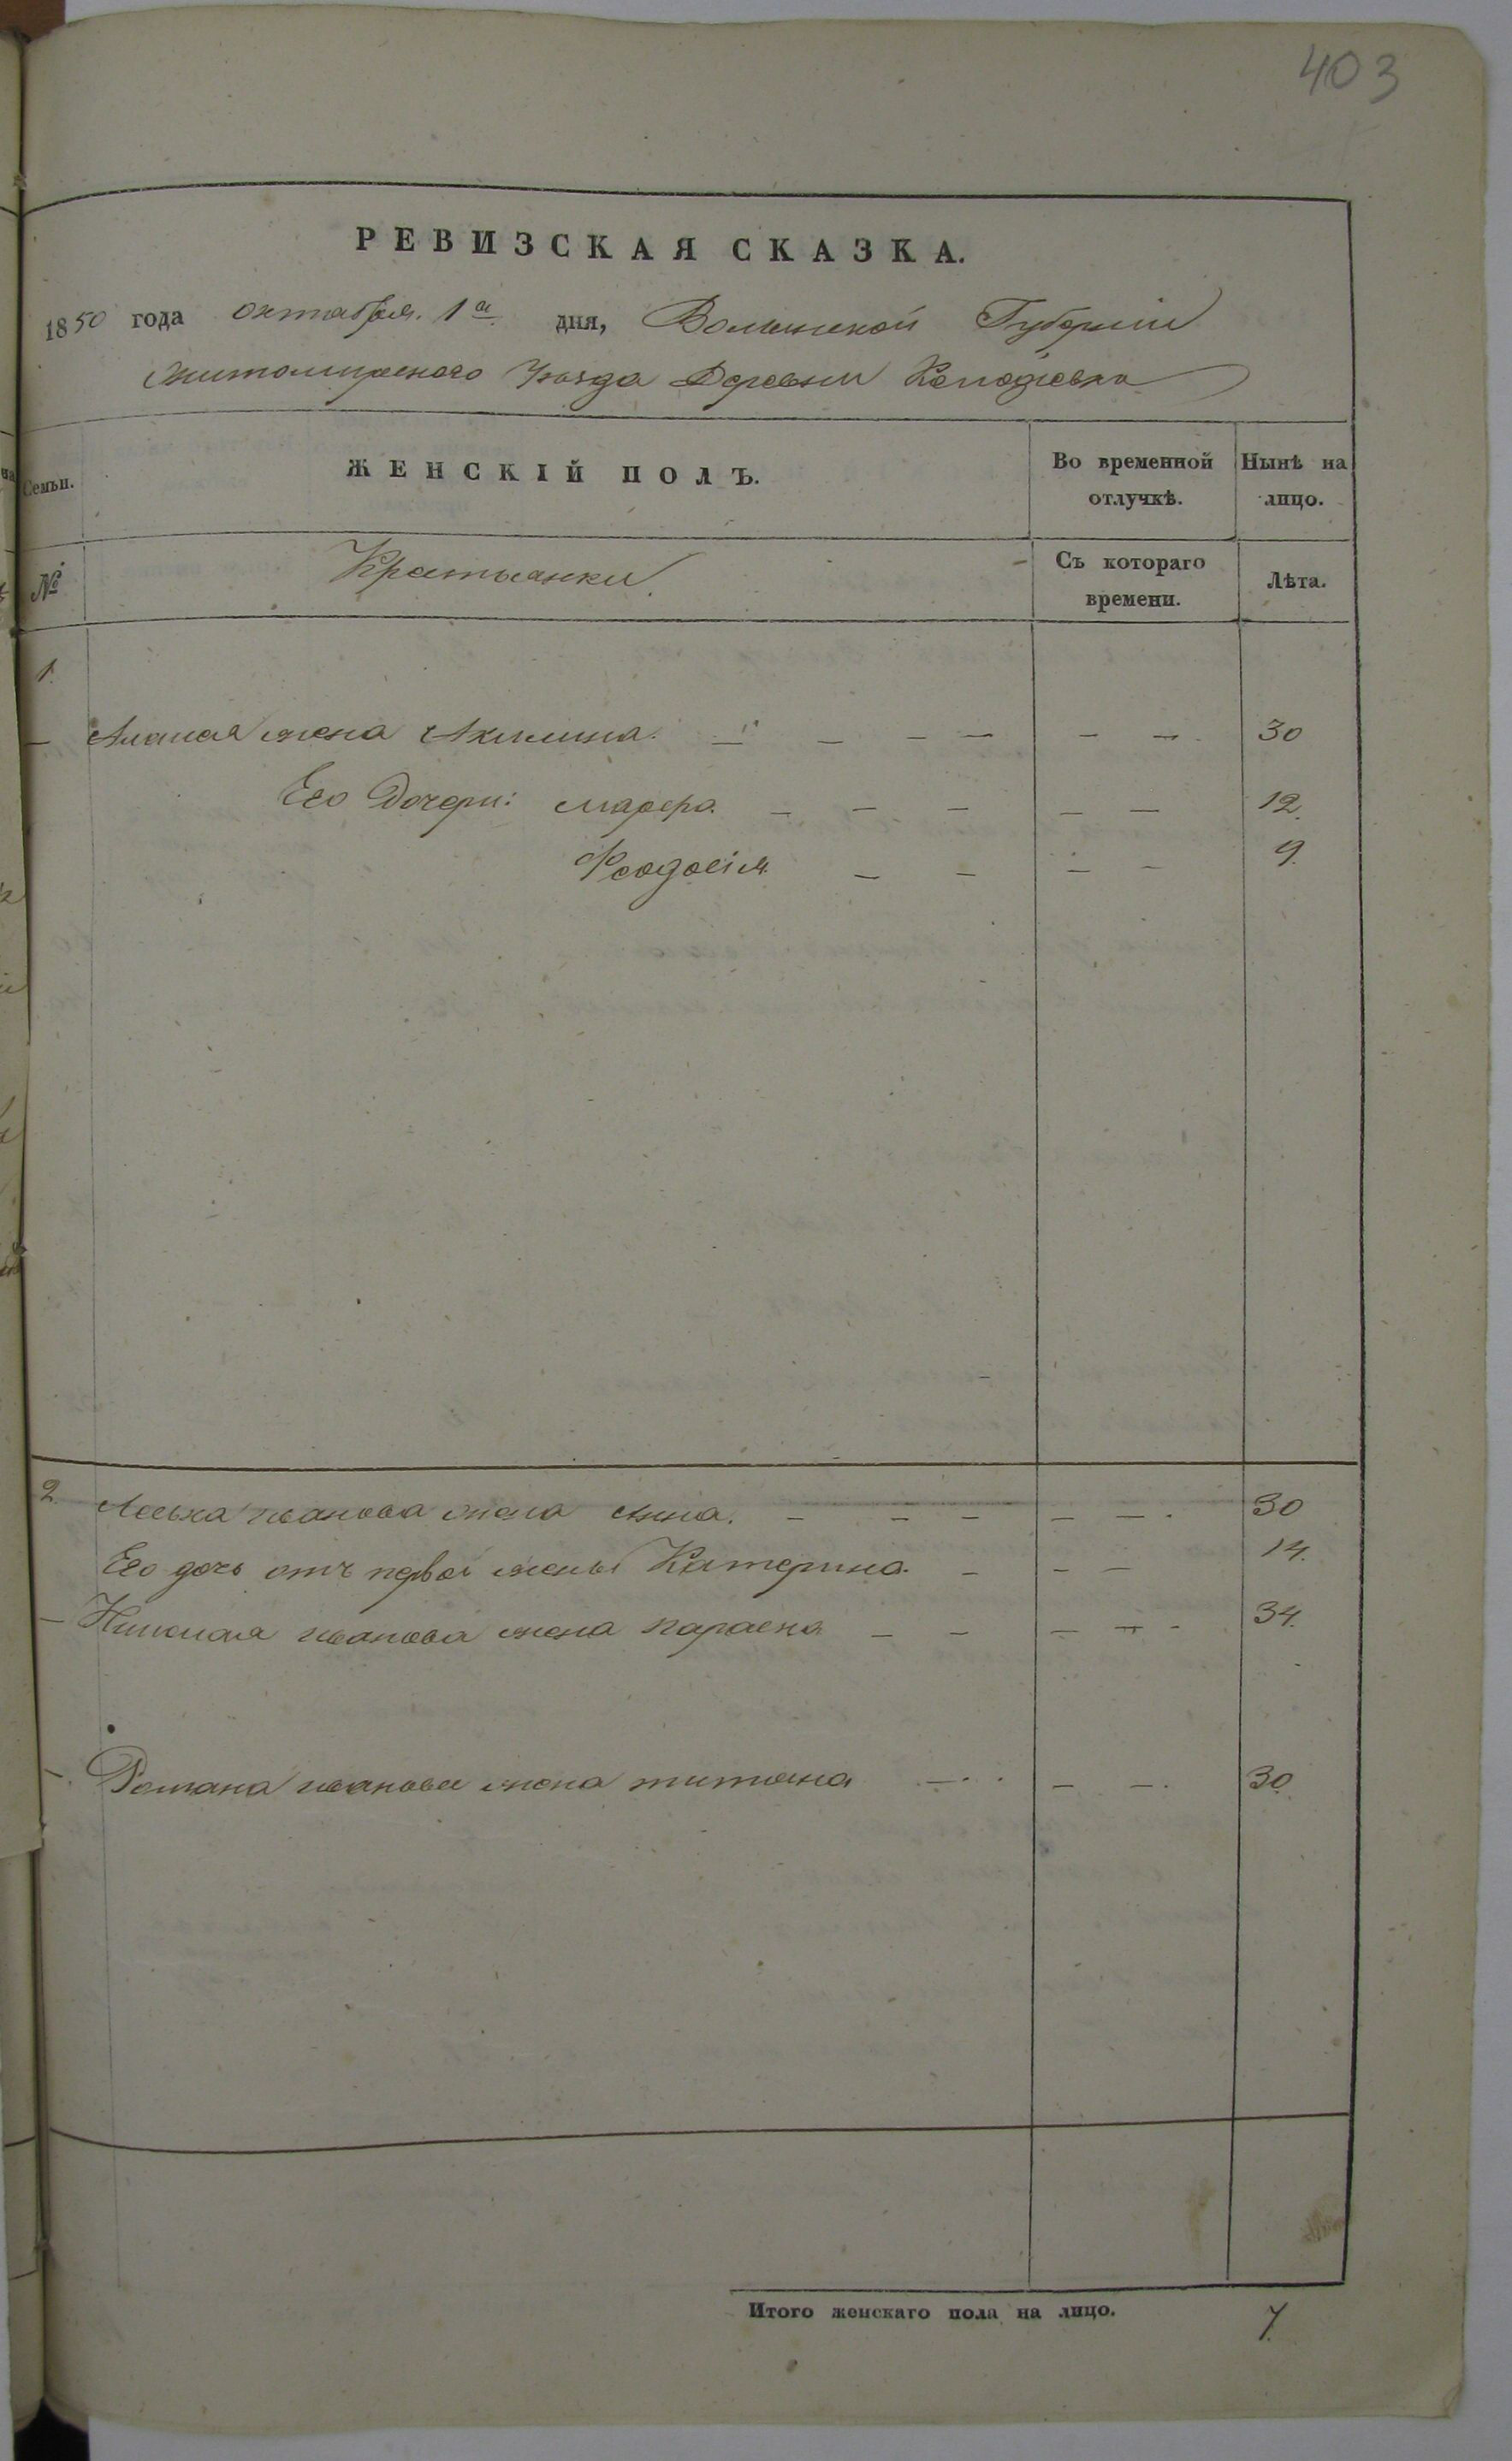 403
РЕВИЗСКАЯ СКАЗКА.
1850 года октабря. 1го дня, Волынской Губерніи
Житомирского Уезда Деревни
Семьи. ЖЕНСКІЙ ПОЛЪ. Во временной отлучкѣ. Нынѣ на лицо.
№ Крестьанки Съ котораго времени. Лѣта.
1.
жена Акилина. — — — — — — 30
Его Дочери: марфа — — — — — 12.
Феодосія — — — — 9.
2. иванова жена Анна. — — — — — 30
Его дочь отъ первой жены Катерина — — — 14.
— Николая иванова жена параска — — — — - 34.
— Романа иванова жена титиана — — — 30
Итого женскаго пола на лицо. 7.